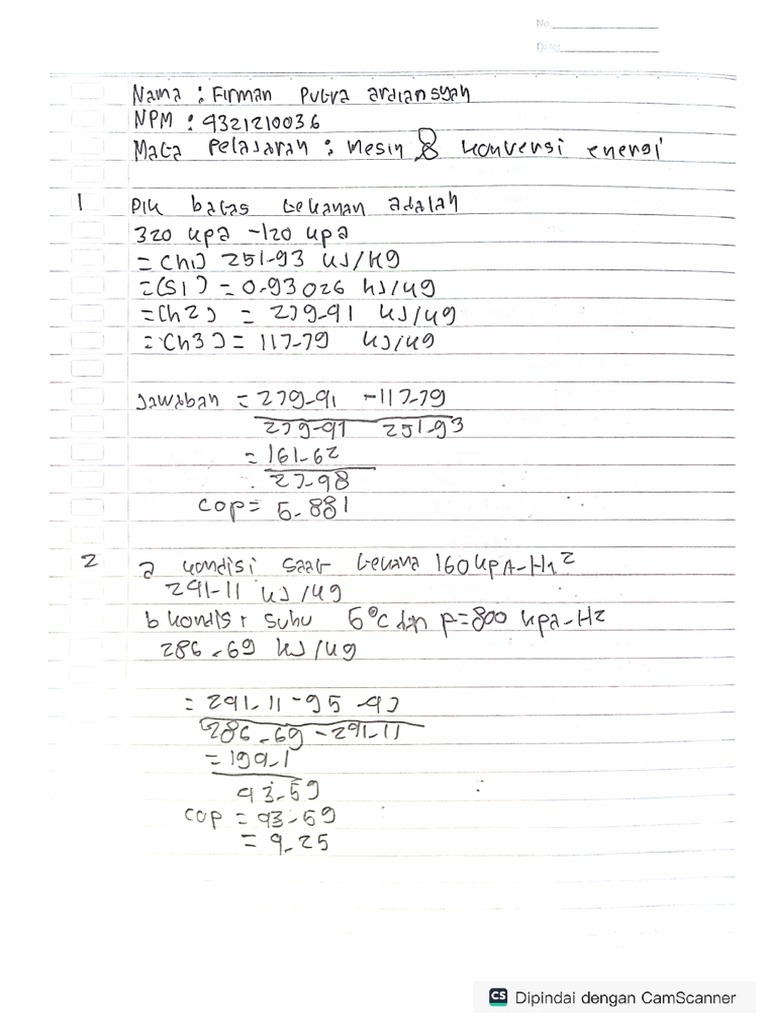 No.
Date:
Nama : Firman Putra ardiansyah
NPM : 9321210036
Mata Pelajaran : mesin & konversi energi
1 Dik batas tekanan adalah
320 kpa -120 kpa
= (h1) 251-93 kJ/kg
= (S1) = 0.93026 kJ/kg
= (h2) = 279-91 kJ/kg
= (h3) = 117-79 kJ/kg
Jawaban = 279-91 -117-79
279-91 251-93
= 161-62
27-98
COP = 5-881
2 a kondisi saat tekana 160 kpA-H1 2
291-11 kJ/kg
b kondisi suhu 5°c dan p=800 kpa-H2
286-69 kJ/kg
= 291-11-95-47
286-69-291-11
= 199-1
93-59
COP = 93-59
= 9-25
CS Dipindai dengan CamScanner